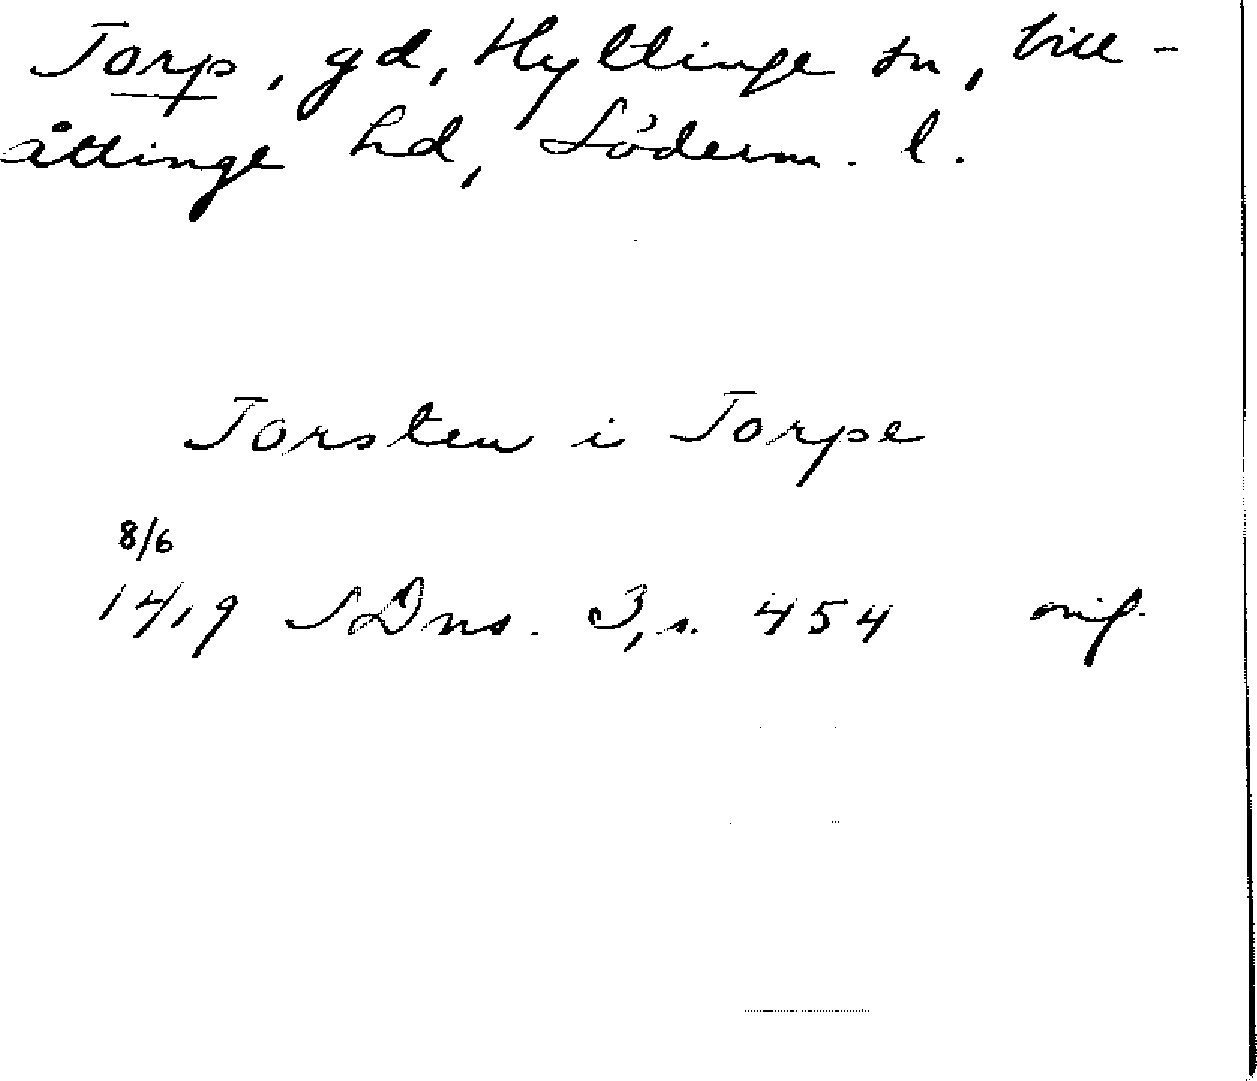 Torp, gd, Hyltinge sn, Vill-
åttinge hd, Söderm. l.
Torsten i Torpe
8/6
1419 SDns. 3, s. 454 orig.